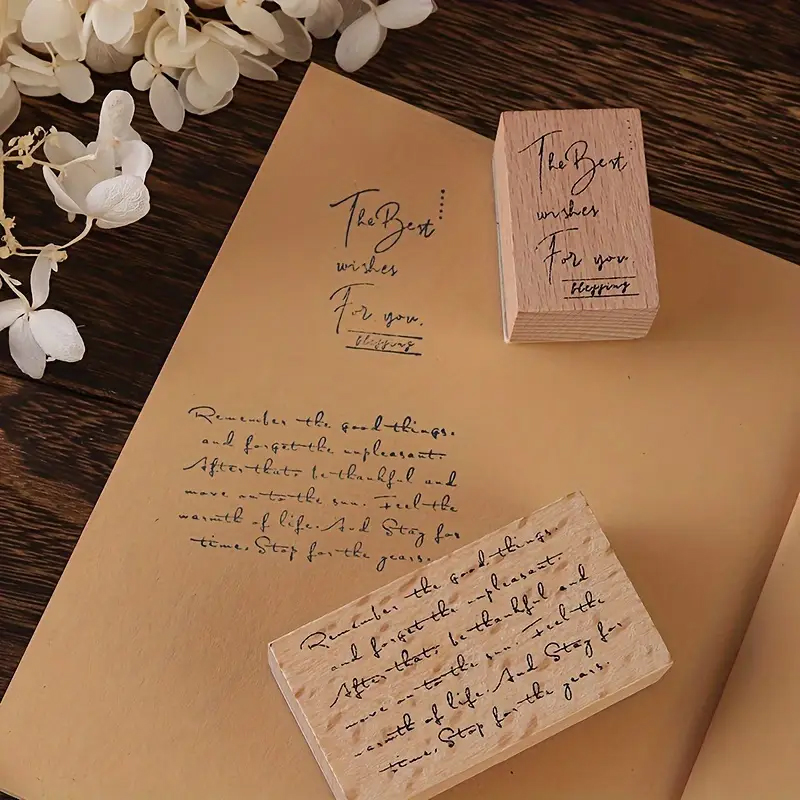 The Best
wishes
For you.
blessing
The Best
wishes
For you.
blessing
Remember the good things.
and forget the unpleasant.
After that, be thankful and
move on to the sun. Feel the
warmth of life. And Stay for
time, Stop for the years.
Remember the good things.
and forget the unpleasant.
After that, be thankful and
move on to the sun. Feel the
warmth of life. And Stay for
time, Stop for the years.